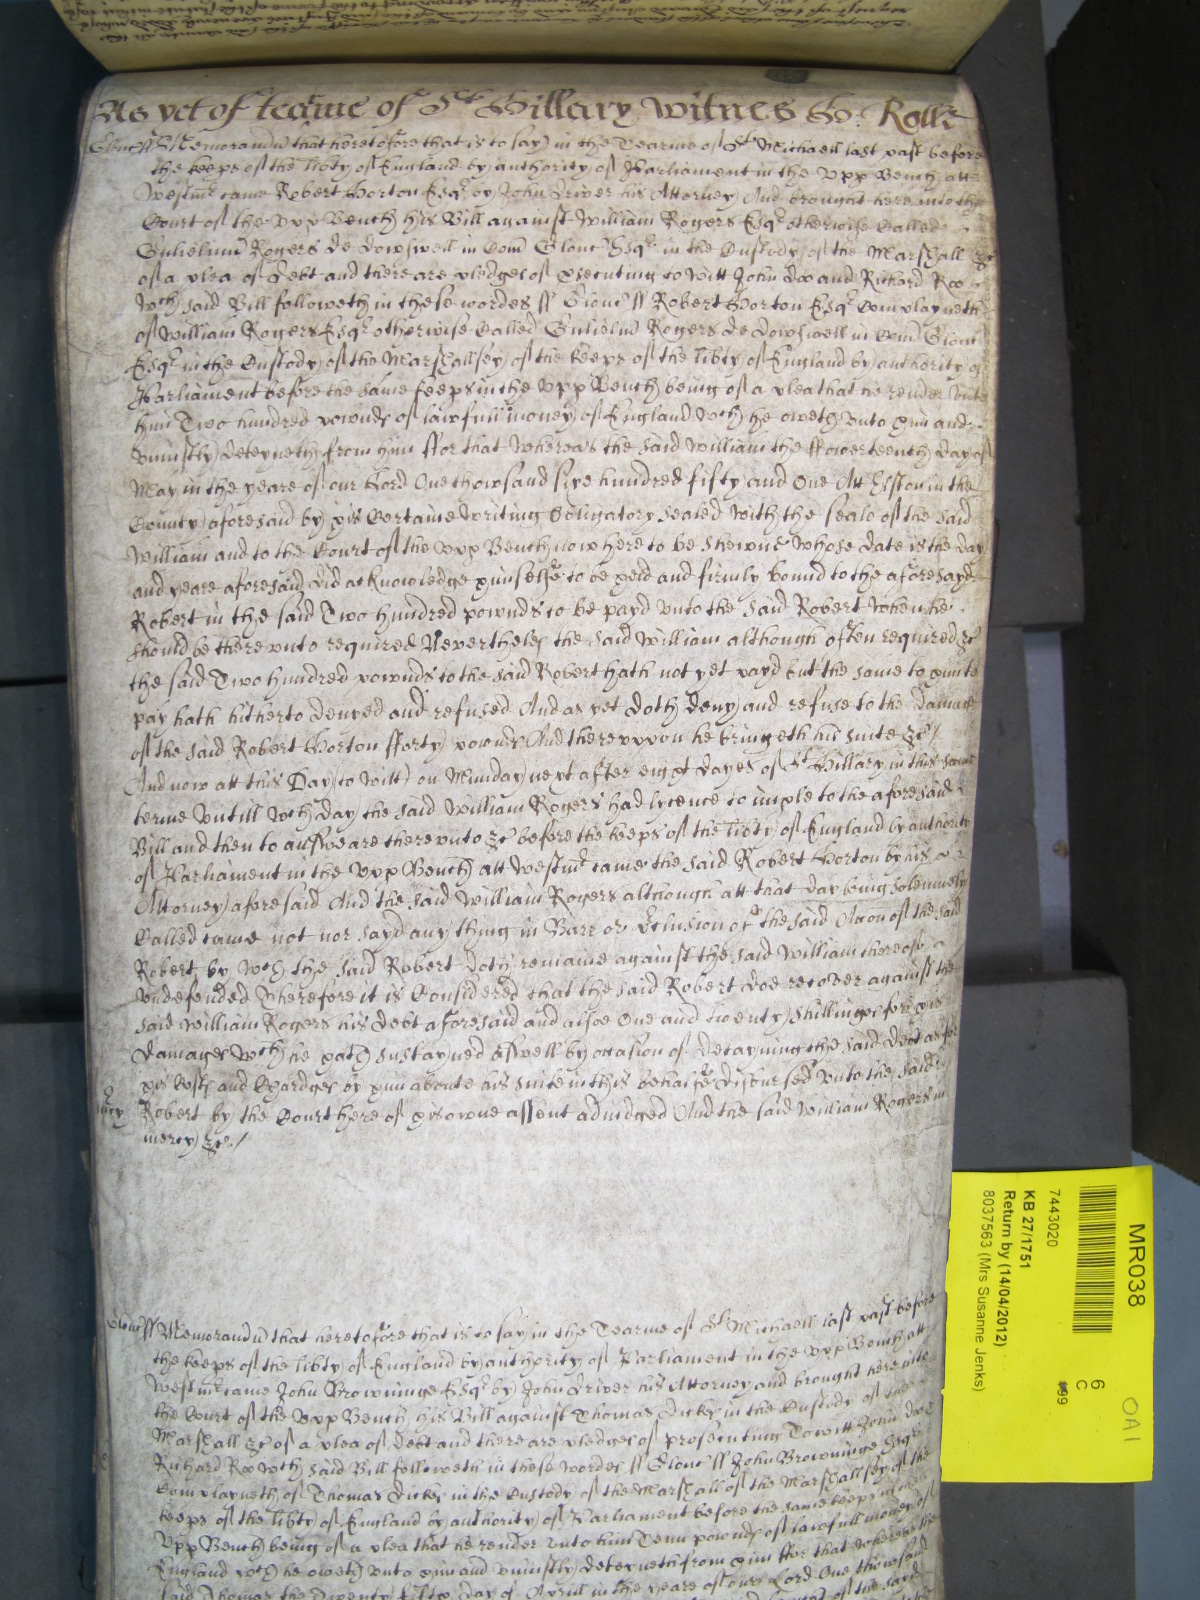 As yet of tearme of St Hillary Witnes H: Rolle
Glouc ss Memorandu that heretofore that is to say in the Tearme of St Michaell last past before
the keeps of the libty of England by authority of Parliament in the Upp Bench att
Westmr came Robert Horton Esqr by John Driver his Attorney And brought here into the
Court of the Upp Bench his Bill against William Rogers Esqr otherwise Called
Gulielmu Rogers de Dowswell in Com Glouc Esqr in the Custody of the Marshall &c
of a plea of Debt and there are pledges of prsecuting to witt John Doo and Richard Roo
wch said Bill followeth in these wordes ss Glouc ss Robert Horton Esqr Complayneth
of William Rogers Esqr otherwise Called Gulielmu Rogers de Dowswell in Com Glouc
Esqr in the Custody of the Marshallsey of the keeps of the libty of England by authority of
Parliament before the same keeps in the Upp Bench being of a plea that he render unto
him Two hundred pownds of lawfull money of England wch he oweth unto him and
uniustly deteyneth from him ffor that Whereas the said William the ffowerteenth day of
May in the yeare of our Lord One thowsand sixe hundred fifty and One Att Elston in the
County aforesaid by his Certaine writing Obligatory sealed with the seale of the said
William and to the Court of the Upp Bench now here to be shewne whose date is the day
and yeare aforesaid did acknowledge himselfe to be held and firmly bound to the aforesayd
Robert in the said Two hundred pownds to be payd unto the said Robert when he
should be thereunto required Neverthelesse the said William although often required &c
the said Two hundred pownds to the said Robert hath not yet payd but the same to him to
pay hath hitherto denyed and refused And as yet doth deny and refuse to the damage
of the said Robert Horton fforty pownds And thereuppon he bringeth his suite &c /
And now att this Day (to witt) on Munday next after eight dayes of St Hillary in this same
terme untill wch day the said William Rogers had lycence to imple to the aforesaid
Bill and then to aunsweare thereunto &c before the keeps of the libty of England by authority
of Parliament in the Upp Bench att Westmr came the said Robert Horton by his
Attorney aforesaid And the said William Rogers although att that day being solemnely
Called came not nor sayd any thing in Barr or Preclusion of the said Accon of the said
Robert by wch the said Robert doth remaine against the said William thereof
undefended Therefore it is Considered that the said Robert doe recover against the
said William Rogers his debt aforesaid and alsoe One and twenty shillinges for his
damages wch he hath sustayned aswell by occasion of detayning the said debt as for
his Costs and Chardges by him aboute his suite in this behalfe disbursed unto the said
mcy Robert by the Court here of his owne assent adiudged And the said William Rogers in
mercy &c /
Glouc ss Memorandu that heretofore that is to say in the Tearme of St Michaell last past before
the keeps of the libty of England by authority of Parliament in the Upp Bench att
Westmr came John Browninge Esqr by John Driver his Attorney and brought here into
the Court of the Upp Bench his Bill against Thomas Dicks in the Custody of the
Marshall &c of a plea of Debt and there are pledges of prosecuting To witt John Doo
Richard Roo wch said Bill followeth in these wordes ss Glouc ss John Browninge Esqr
Complayneth of Thomas Dickes in the Custody of the Marshall of the Marshallsey of the
keeps of the libty of England by authority of Parliament before the same keeps in the
Upp Bench being of a plea that he render unto him Tenn pownds of lawfull money of
England wch he oweth unto him and uniustly deteyneth from him ffor that whereas the
said Thomas the Twenty day of Aprill in the yeare of our Lord One thowsand
MR038
7443020
KB 27/1751
Return by (14/04/2012)
8037563 (Mrs Susanne Jenks)
6
C
#99
OA1